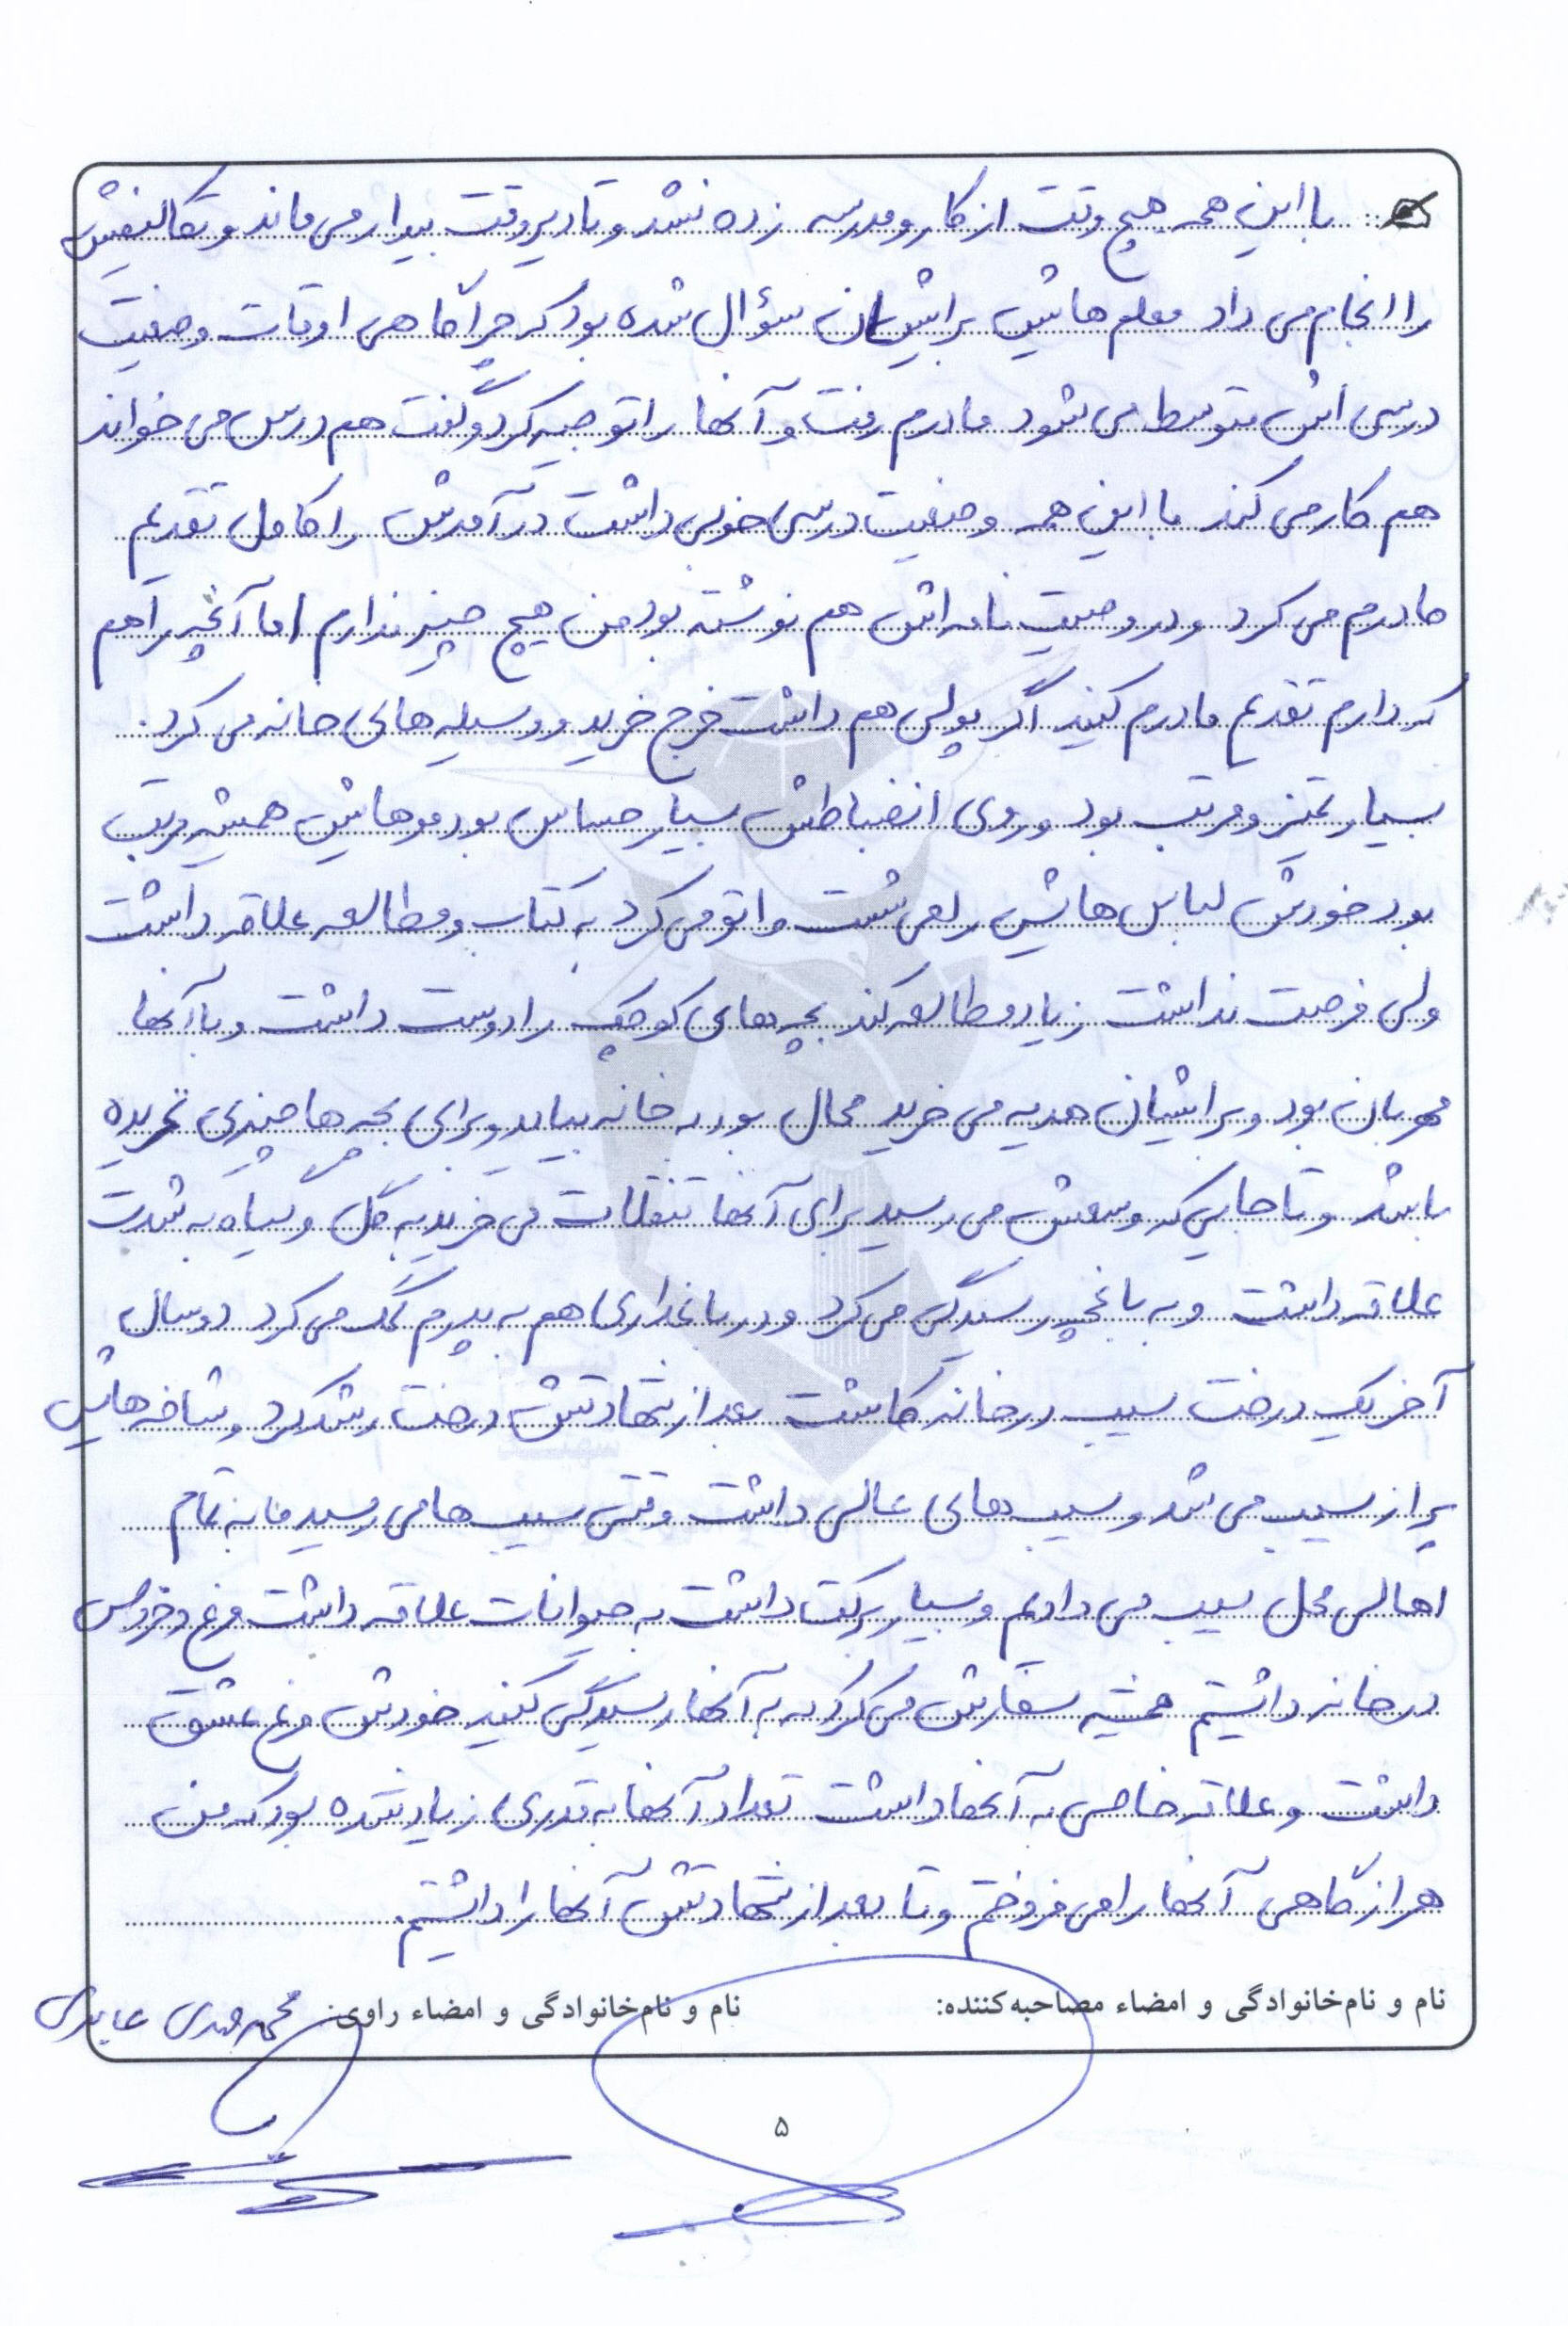 با این همه هیچ وقت از کار و مدرسه زده نشد و تا دیر وقت بیدار می ماند و تکالیفش
را انجام می داد معلم هاش برایشان سؤال شده بود که چرا گاهی اوقات وضعیت
درسی اش متوسط می شود مادرم رفت و آنها را توجیه کرد و گفت هم درس می خواند
هم کار می کند با این همه وضعیت درسی خوبی داشت درآمدش را کامل تقدیم
مادرم می کرد و در وصیت نامه اش هم نوشته بود من هیچ چیز ندارم اما آنچه را هم
که دارم تقدیم مادرم کنید اگر پولی هم داشت خرج خرید و وسیله های خانه می کرد.
بسیار تمیز و مرتب بود و روی انضباطش بسیار حساس بود موهایش همیشه مرتب
بود خودش لباس هایش را می شست و اتو می کرد به کتاب و مطالعه علاقه داشت
ولی فرصت نداشت زیاد مطالعه کند بچه های کوچک را دوست داشت و با آنها
مهربان بود و برایشان هدیه می خرید محال بود به خانه بیاید و برای بچه ها چیزی نخریده
باشد و تا جایی که وسعش می رسید برای آنها تنقلات می خرید به گل و گیاه به شدت
علاقه داشت و به باغچه رسیدگی می کرد و در باغداری هم به پدرم کمک می کرد دو سال
آخر یک درخت سیب در خانه کاشت بعد از شهادتش درخت رشد کرد و شاخه هایش
پر از سیب می شد و سیب های عالی داشت وقتی سیب ها می رسید ما به تمام
اهالی محل سیب می دادیم و بسیار برکت داشت به حیوانات علاقه داشت مرغ و خروس
در خانه داشتیم همیشه سفارش می کرد که به آنها رسیدگی کنید خودش مرغ عشق
داشت و علاقه خاصی به آنها داشت تعداد آنها به قدری زیاد شده بود که من
هر از گاهی آنها را می فروختم و تا بعد از شهادتش آنها را داشتیم.
نام و نام‌خانوادگی و امضاء مصاحبه‌کننده: نام و نام‌خانوادگی و امضاء راوی: محمدمهدی عابدی
۵